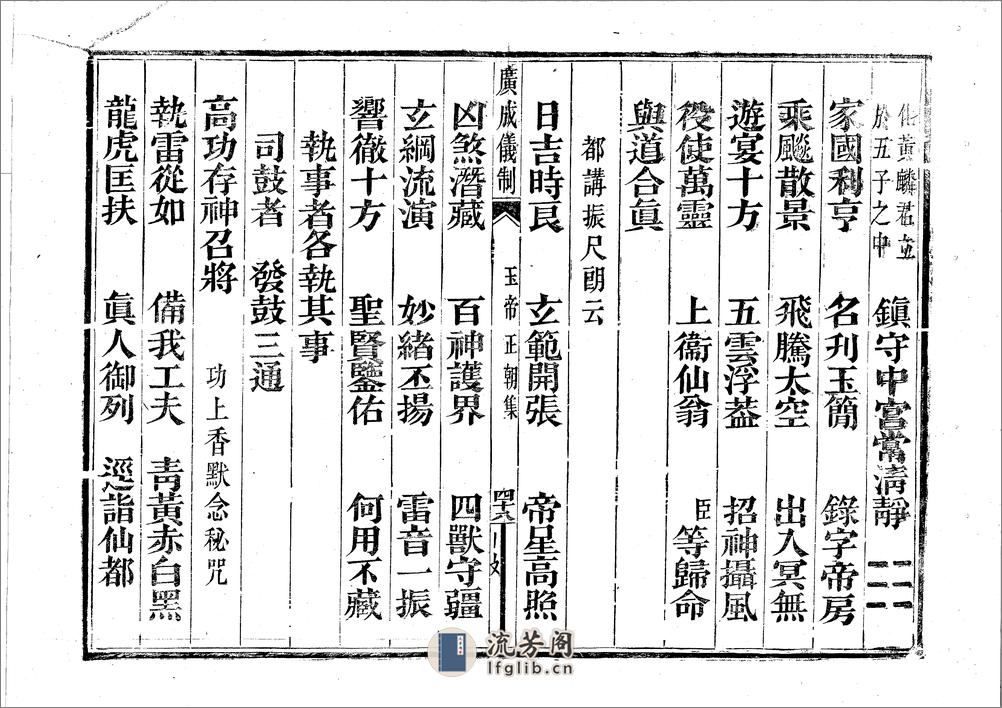 化黃麟君立
於五子之中
鎮守中宮常清靜
家國利亨 名刋玉簡 錄字帝房
乘飈散景 飛騰太空 出入冥無
遊宴十方 五雲浮葢 招神攝風
役使萬靈 上衞仙翁 臣等歸命
與道合眞
都講振尺朗云
日吉時良 玄範開張 帝星高照
廣成儀制 玉帝正朝集
凶煞潛藏 百神護界 四獸守疆
玄綱流演 妙緒丕揚 雷音一振
響徹十方 聖賢鑒佑 何用不藏
執事者各執其事
司鼓者 發鼓三通
高功存神召將 功上香默念秘咒
執雷從如 備我工夫 靑黃赤白黑
龍虎匡扶 眞人御列 逕詣仙都
流芳阁
lfglib.cn